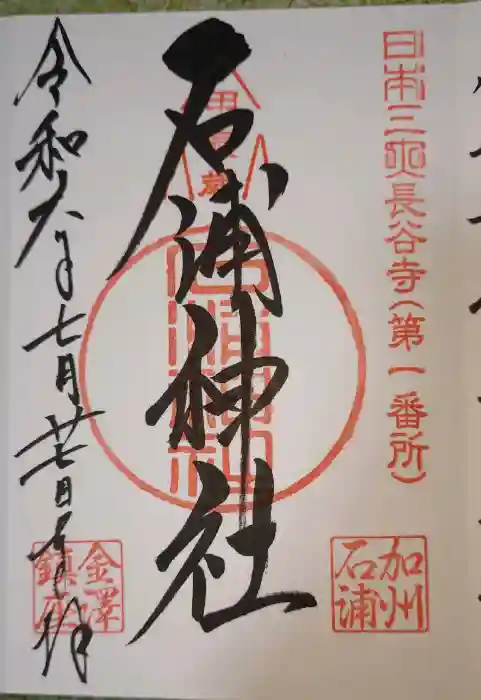 日本三所長谷寺(第一番所)
石浦神社
加州
石浦
令和六年七月廿七日奉拝
金澤
鎮座